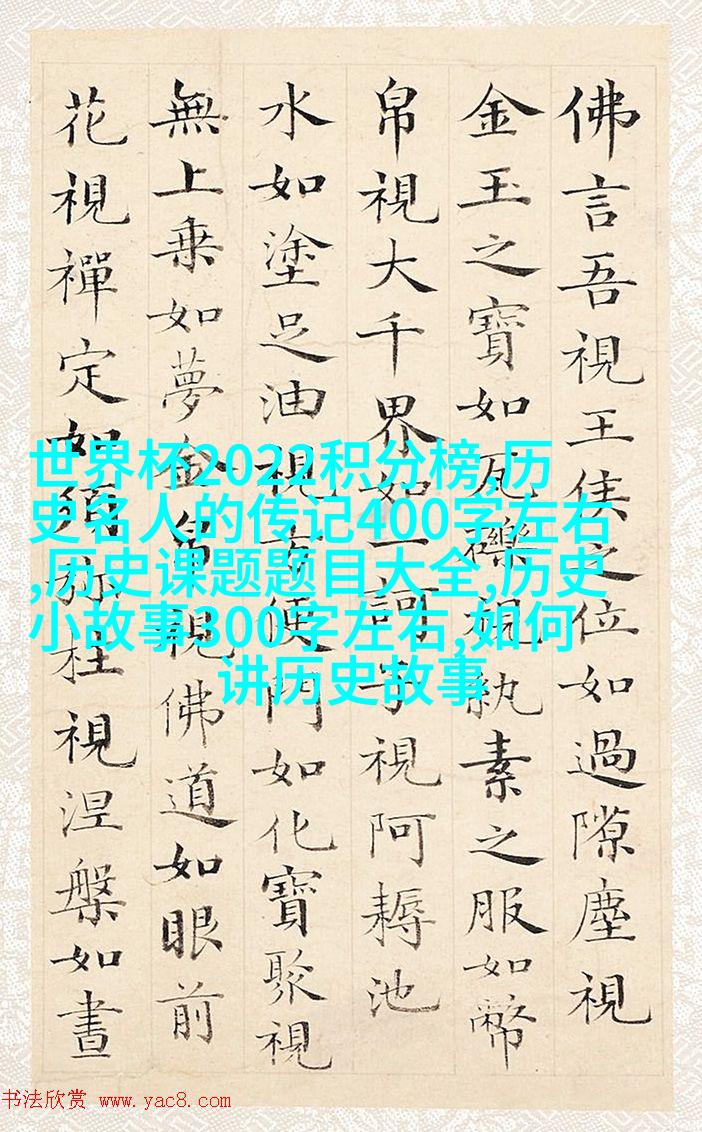 佛言吾視王侯之位如過隙塵視
金玉之寶如瓦礫視紈素之服如幣
帛視大千界如一訶子視阿耨池
水如塗足油視方便門如化寶聚視
無上乗如夢金帛視佛道如眼前
花視禪定如須弥柱視涅槃如晝
世界杯2022积分榜,历
史名人的传记400字左右
,历史课题题目大全,历史
小故事300字左右,如何
讲历史故事
书法欣赏 www.yac8.com